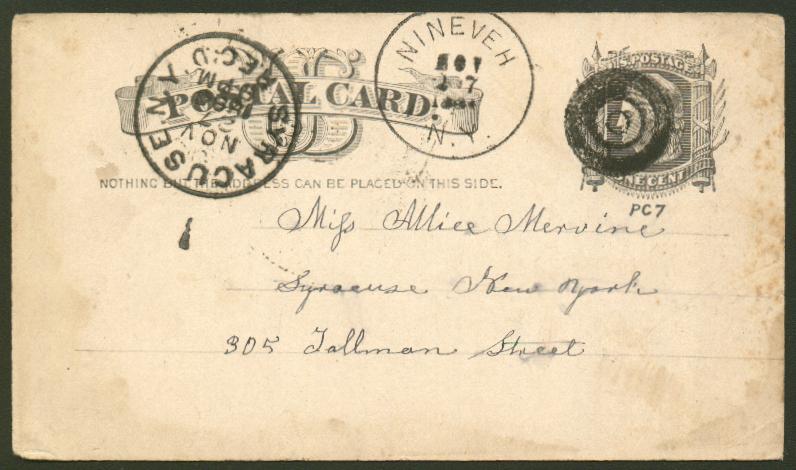 NINEVEH
NOV
27
N.Y.
SYRACUSE N.Y.
REC'D
NOV
27
PM
POSTAL CARD
U.S. POSTAGE
ONE CENT
PC7
NOTHING BUT THE ADDRESS CAN BE PLACED ON THIS SIDE.
Miss Allice Mervine
Syracuse New York
305 Tallman Street